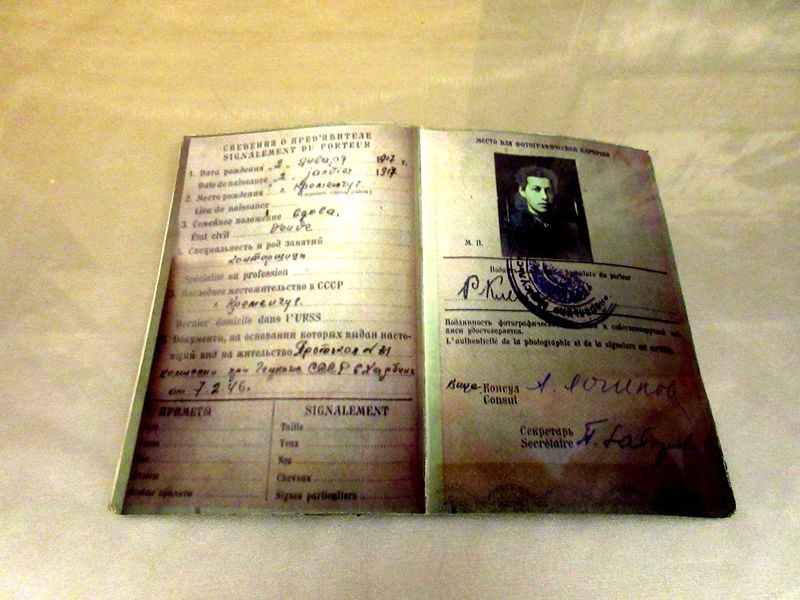 СВЕДЕНИЯ О ПРЕД'ЯВИТЕЛЕ
SIGNALEMENT DU PORTEUR
1. Дата рождения „2" января 1917 г.
Date de naissance „2" 1917
2. Место рождения г. Кременчуг
Lieu de naissance
3. Семейное положение вдова.
État civil
4. Специальность и род занятий
конторщица
Spécialité ou profession
5. Последнее местожительство в СССР
г. Кременчуг.
Dernier domicile dans l'URSS
6. Документы, на основании которых выдан настоящий вид на жительство Протокол № 31
комиссии при СССР в Харбине
от 7.2.46.
ПРИМЕТЫ
SIGNALEMENT
Taille
Yeux
Nez
Cheveux
Особые приметы
Signes particuliers
МЕСТО ДЛЯ ФОТОГРАФИЧЕСКОЙ КАРТОЧКИ
М. П.
Signature du porteur
Подлинность фотографической и собственноручной под-
писи удостоверяется.
L'authenticité de la photographie et de la signature est certifiée.
Вице-Консул
Consul
Секретарь
Secrétaire